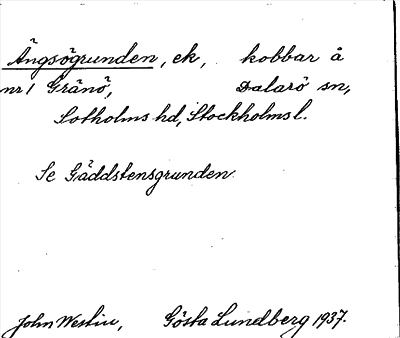 Ängsögrunden, ek, kobbar å
nr 1 Gränö, Dalarö sn,
Sotholms hd, Stockholms l.
Se Gäddstensgrunden.
John Westin, Gösta Lundberg 1937.